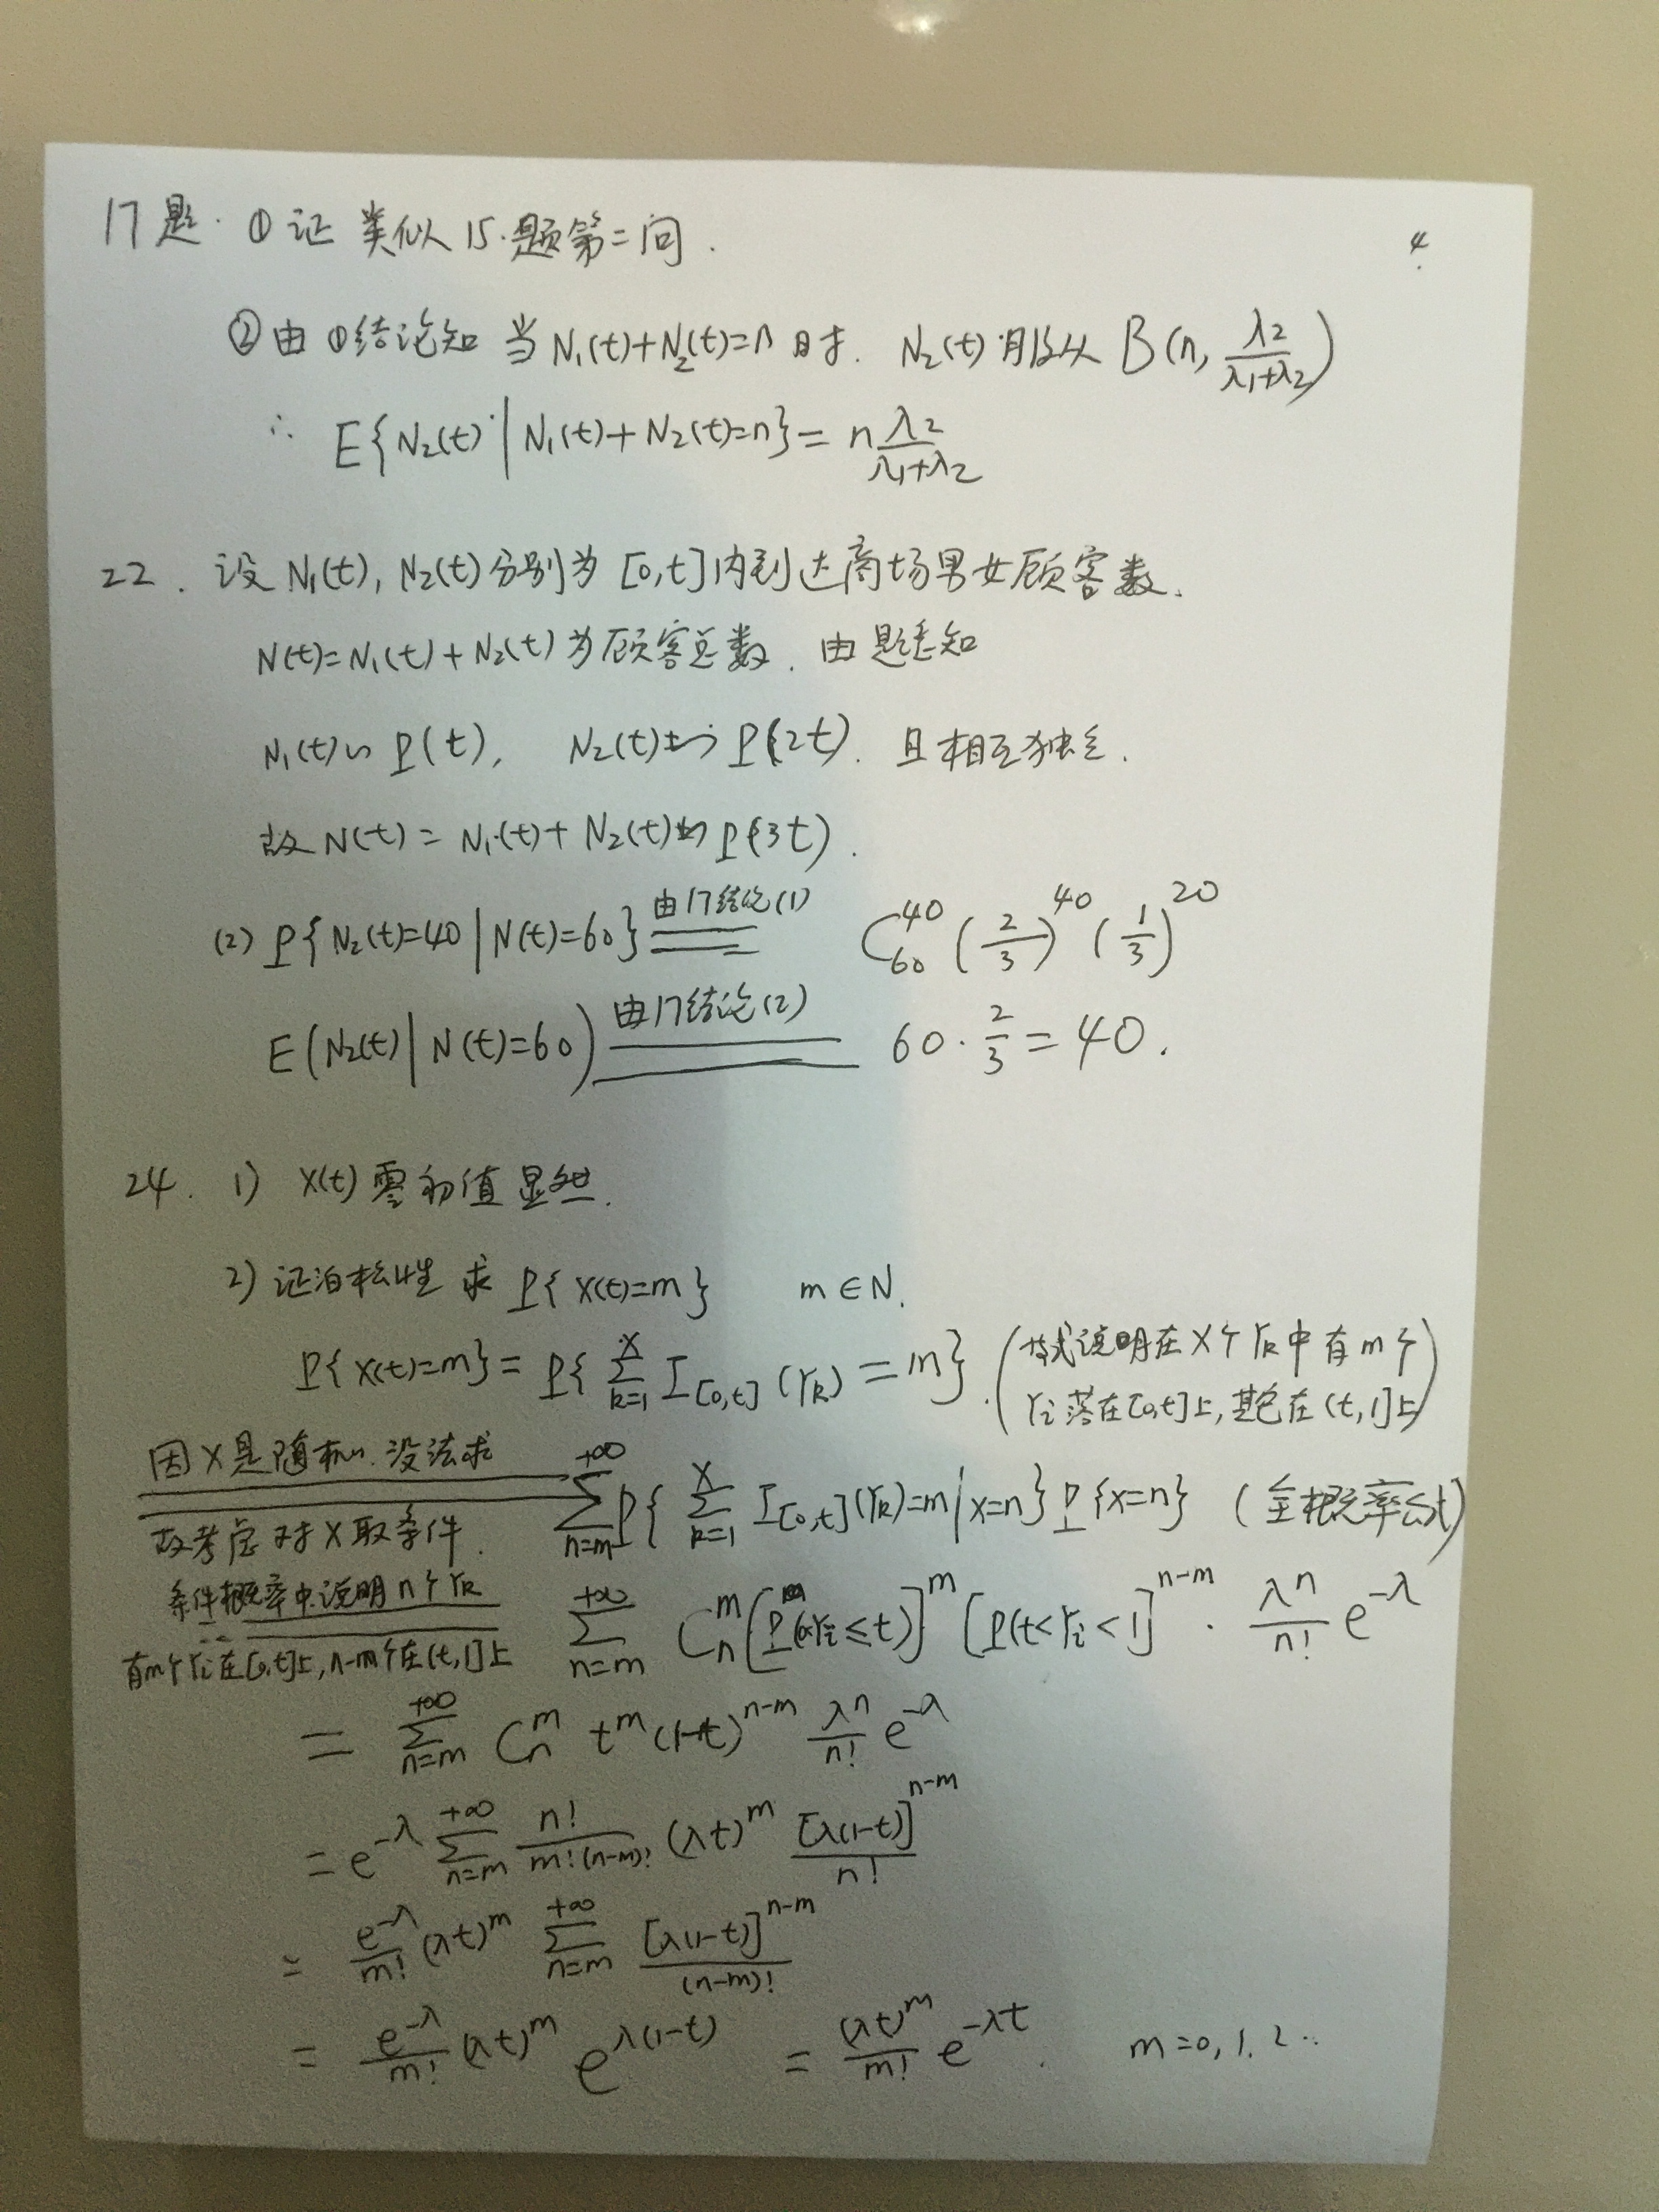 17题. ①证 类似15.题第二问.
4.
②由①结论知 当N₁(t)+N₂(t)=n时. N₂(t)服从 B(n, λ₂/(λ₁+λ₂))
∴ E{N₂(t)|N₁(t)+N₂(t)=n} = n λ₂/(λ₁+λ₂)
22. 设N₁(t), N₂(t)分别为[0,t]内到达商场男女顾客数.
N(t)=N₁(t)+N₂(t)为顾客总数. 由题意知
N₁(t)~P(t), N₂(t)~P(2t). 且相互独立.
故N(t) = N₁(t)+N₂(t)~P(3t).
(2) P{N₂(t)=40|N(t)=60} 由17结论(1) = C₆₀⁴⁰ (2/3)⁴⁰ (1/3)²⁰
E(N₂(t)|N(t)=60) 由17结论(2) = 60·2/3=40.
24. 1) X(t)零初值显然.
2) 证泊松性 求 P{X(t)=m} m∈N.
P{X(t)=m} = P{∑_{k=1}^{X} I_{[0,t]}(Y_k) = m}. (等式说明在X个Y_k中有m个
Y_i落在[0,t]上,其它在(t,1]上)
因X是随机.没法求
故考虑对X取条件.
∑_{n=m}^{+∞} P{∑_{k=1}^{X} I_{[0,t]}(Y_k)=m|X=n} P{X=n} (全概率公式)
条件概率中说明n个Y_k
有m个Y_i在[0,t]上,n-m个在(t,1]上
∑_{n=m}^{+∞} C_n^m [P(0≤Y_i≤t)]^m [P(t<Y_i<1]^{n-m} · λⁿ/n! e^{-λ}
= ∑_{n=m}^{+∞} C_n^m t^m (1-t)^{n-m} λⁿ/n! e^{-λ}
= e^{-λ} ∑_{n=m}^{+∞} n!/(m!(n-m)!) (λt)^m [λ(1-t)]^{n-m}/n!
= e^{-λ}/m! (λt)^m ∑_{n=m}^{+∞} [λ(1-t)]^{n-m}/(n-m)!
= e^{-λ}/m! (λt)^m e^{λ(1-t)} = (λt)^m/m! e^{-λt}. m=0,1,2…